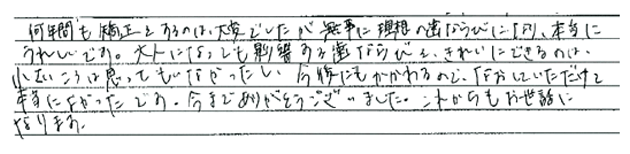 何年間も矯正をするのは、大変でしたが無事に理想の歯ならびになり、本当に
うれしいです。大人になっても影響する歯ならびを、きれいにできるのは、
小さいころは思ってもいなかったし、今後にもかかわるので、なおしていただけて
本当によかったです。今までありがとうございました。これからもお世話に
なります。